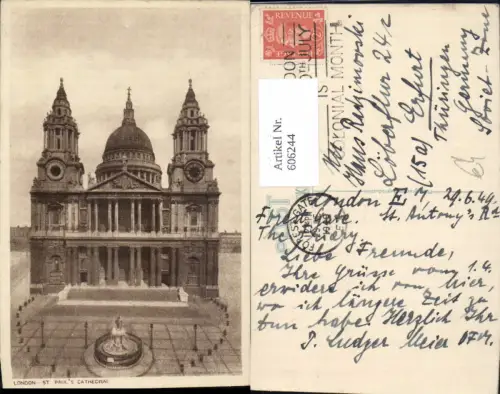 LONDON. ST. PAUL'S CATHEDRAL
REVENUE
JULY
IS
COLONIAL MONTH
Artikel Nr.
606244
Hans
Löberflur 24c
(15a) Erfurt
Thüringen
Germany
London E 7, 29.6.49
Forest Gate. St. Antony's Rd
The Friary.
Liebe Freunde,
Ihre Grüsse vom 1.4.
erwidere ich von hier,
wo ich längere Zeit zu
tun habe. Herzlich Ihr
P. Ludger Meier OFM.